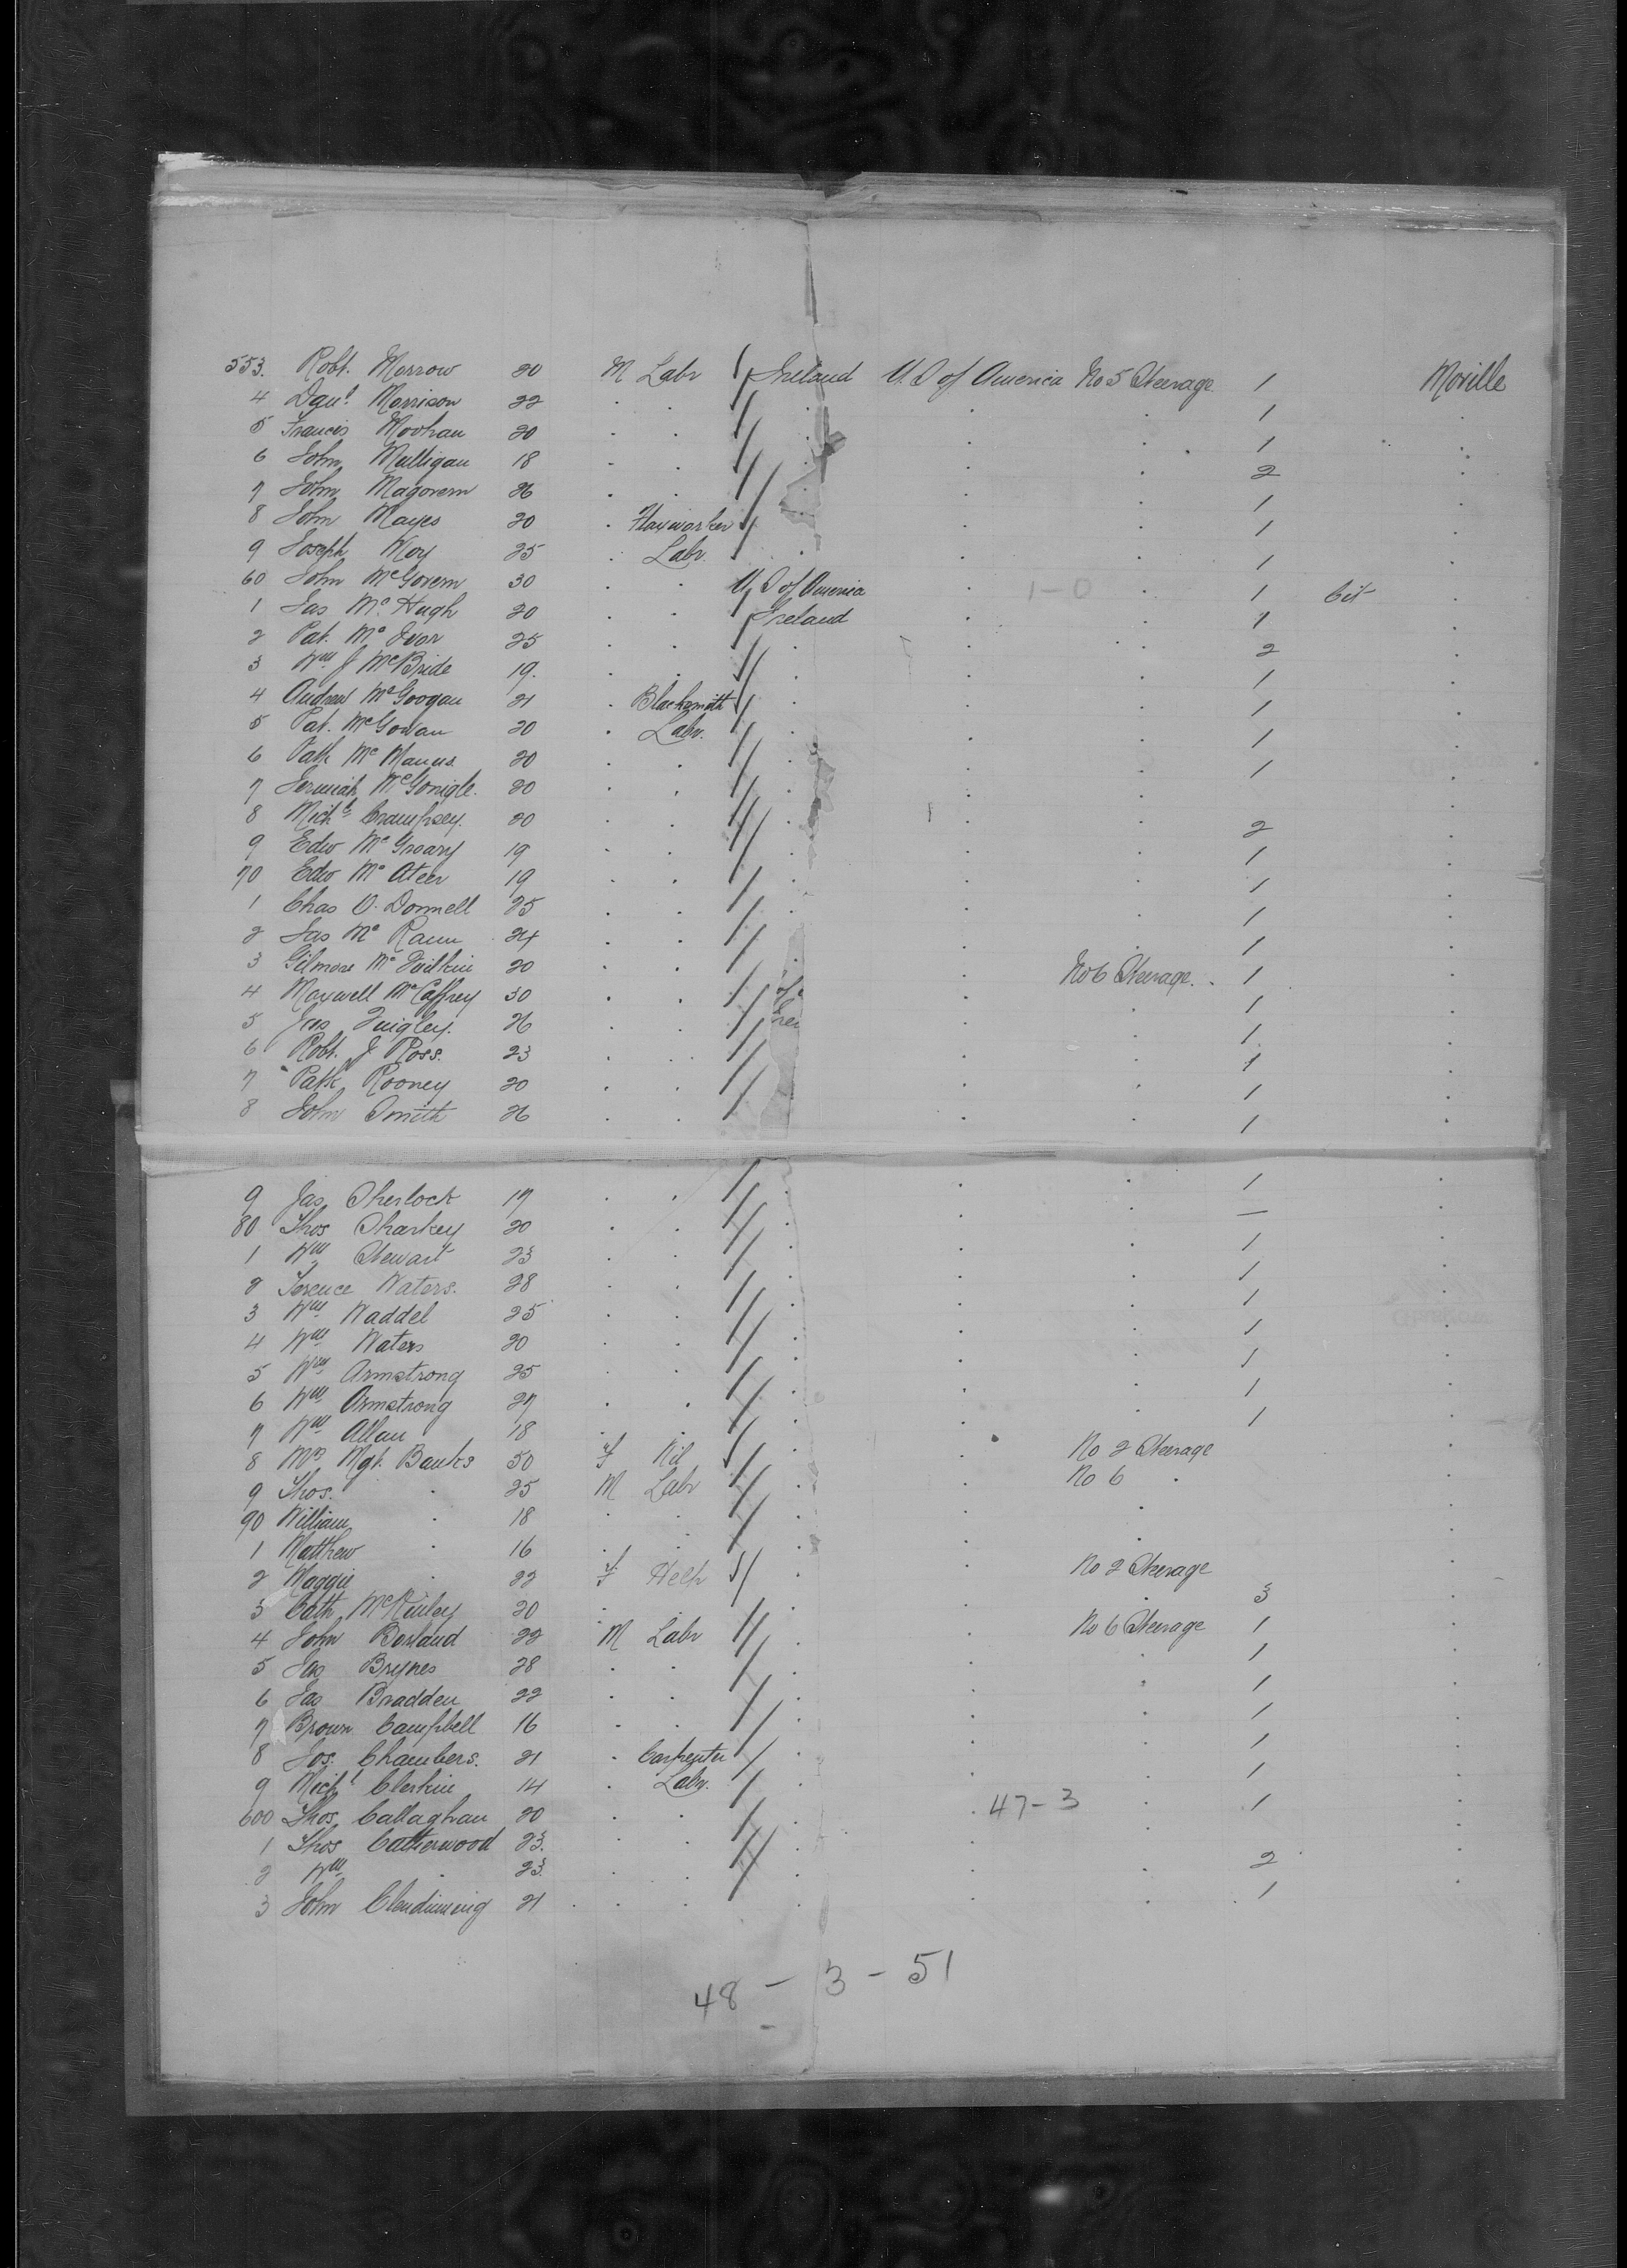 553. Robt. Morrow 20 M Labr Ireland U.S of America No 5 Steerage 1 Moville
4 Danl. Morrison 22 . . . . . 1 .
5 Francis Moohan 20 . . . . . 1 .
6 John Mulligan 18 . . . . 2 .
7 John Magovern 26 . . . . 1 .
8 John Mayes 20 . Flaxworker . . 1 .
9 Joseph Moy 25 . Labr. . . . 1 .
60 John McGovern 30 . . U.S of America . 1-0 . 1 Cit .
1 Jas McHugh 20 . . Ireland . . 1 .
2 Pat. McIvor 25 . . . . . 2 .
3 Wm J McBride 19. . . . . . 1 .
4 Andrew McGoogan 21 . Blacksmith . . . 1 .
5 Pat. McGowan 20 . Labr. . . . 1 .
6 Patk McManus 20 . . . . . 1 .
7 Jermiah McGonigle. 20 . . . . .
8 Michl Crampsey. 20 . . . . . 2 .
9 Edw McGroary 19 . . . . . 1 .
70 Edw McAteer 19 . . . . . 1 .
1 Chas O. Donnell 25 . . . . . 1 .
2 Jas McRann 24 . . . . . 1 .
3 Gilmore 20 . . . No 6 Steerage. . 1 .
4 Maxwell McCaffrey 30 . . . . 1 .
5 Quigley. 26 . . . . 1 .
6 Robt. J Ross. 23 . . . . 1 .
7 Patk Rooney 20 . . . . 1 .
8 John Smith 26 . . . . 1 .
9 Jas Sherlock 17 . . . . . 1 .
80 Thos Sharkey 20 . . . . . — .
1 Wm Stewart 23 . . . . . 1 .
2 Terence Waters. 28 . . . . . 1 .
3 Wm Waddel 25 . . . . . 1 .
4 Wm Waters 20 . . . . . 1 .
5 Wm Armstrong 25 . . . . . 1 .
6 Wm Armstrong 27 . . . . . 1 .
7 Wm Allan 18 . . . . . 1 .
8 Mrs Mgt. Banks 50 f Nil . . No 2 Steerage .
9 Thos. . 25 M Labr . . No 6 . .
90 William . 18 . . . . . .
1 Matthew . 16 . . . . . .
2 Maggie . 22 f Help . . No 2 Steerage .
3 Cath McKinley 20 . . . . . 3 .
4 John Borland 22 M Labr . . No 6 Steerage 1 .
5 Jas Brynes 28 . . . . . 1 .
6 Jas Bradden 22 . . . . . 1 .
7 Brown Campbell 16 . . . . . 1 .
8 Jos. Chambers. 21 . Carpenter . . . 1 .
9 Michl Clerkin 14 . Labr. . . . 1 .
600 Thos Callaghan 20 . . . . 47-3 . 1 .
1 Thos Catherwood 23. . . . . . .
2 Wm . 23. . . . . . 2 .
3 John Clendinning 21 . . . . . . 1 .
48 - 3 - 51